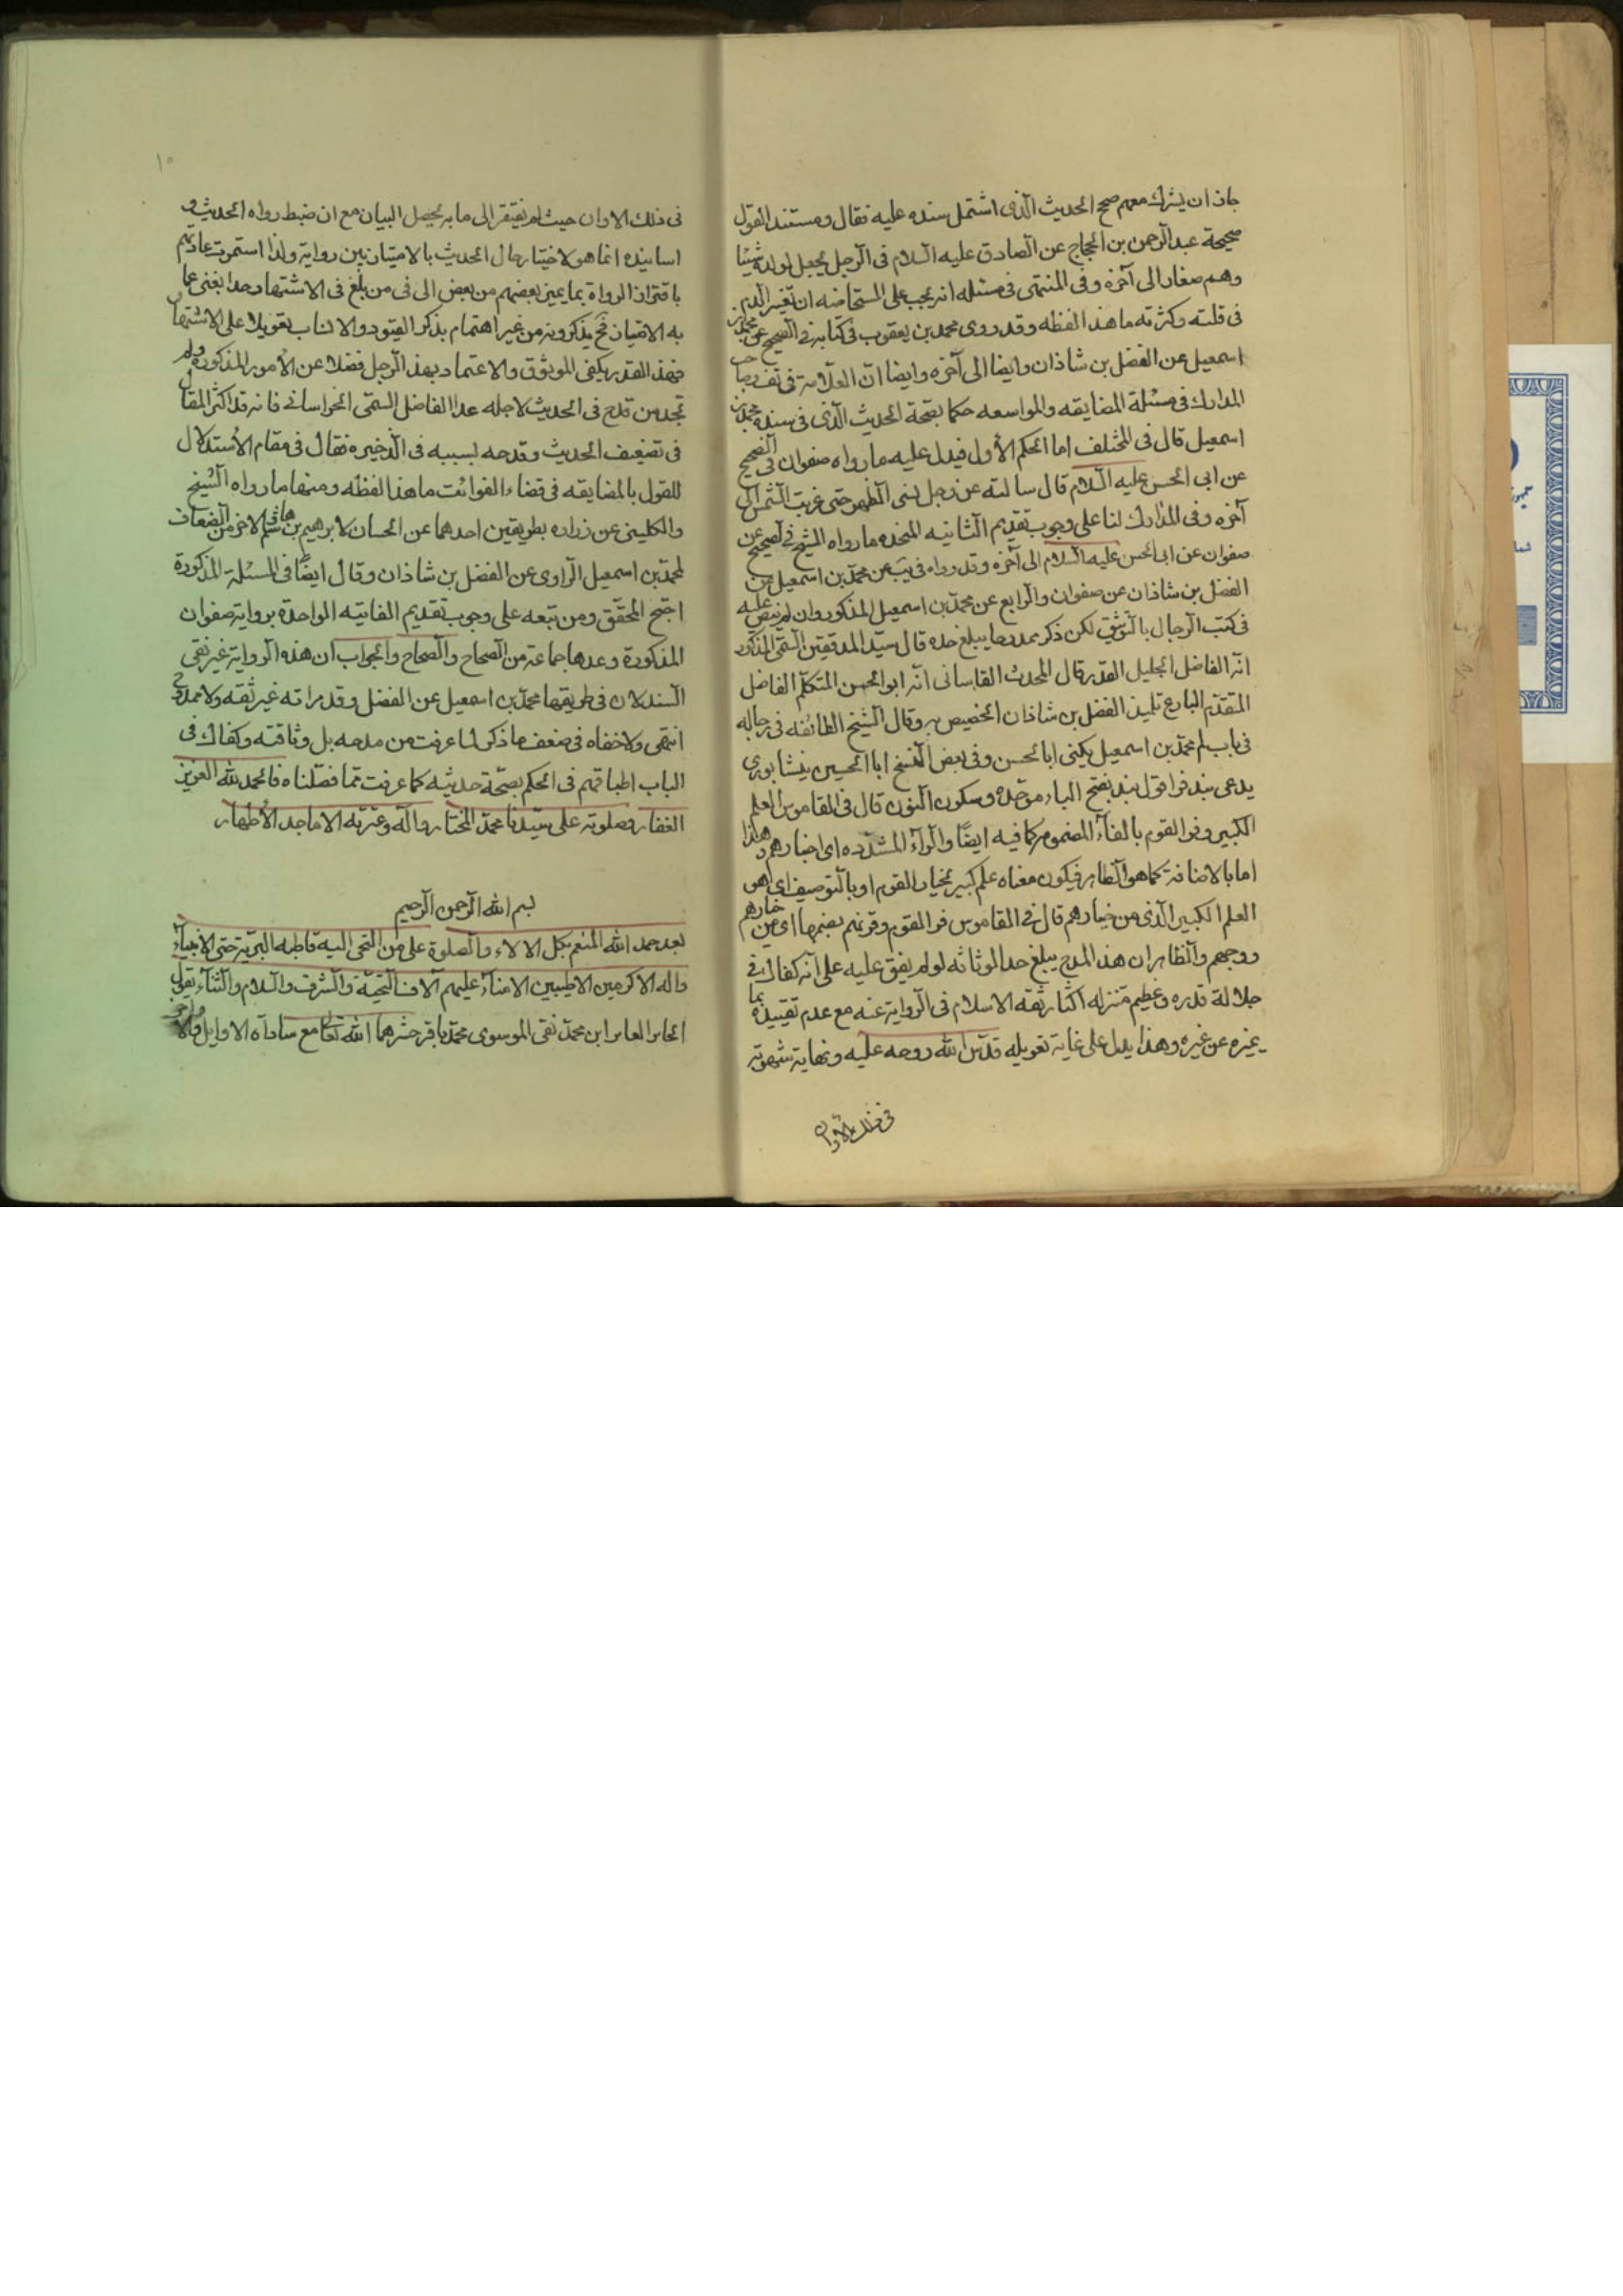 جاز ان يشرك معهم صحح الحديث الذى اشتمل سنده عليه فقال ومستند القول
صحيحة عبد الرحمن بن الحجاج عن الصادق عليه السلام فى الرجل يجعل لولده شيئا
وهم صغار الى آخره وفى المنتهى فى مسئله انه يجب على المستحاضه ان تغير الدم
فى قلته وكثرته ما هذا لفظه وقد روى محمد بن يعقوب فى كتابه فى الصحيح عن محمد بن
اسمعيل عن الفضل بن شاذان وايضا الى آخره وايضا ان العلامة فى
المدارك فى مسئلة المضايقه والمواسعه حكما بصحة الحديث الذى فى سنده محمد بن
اسمعيل قال فى المختلف اما الحكم الأول فيدل عليه ما رواه صفوان فى الصحيح
عن ابى الحسن عليه السلام قال سالته عن رجل نسى الظهر حتى غربت الشمس الى
آخره وفى المدارك لنا على وجوب تقديم الثانيه المتحده ما رواه الشيخ فى الصحيح عن
صفوان عن ابى الحسن عليه السلام الى آخره وقد رواه فى يب عن محمد بن اسمعيل عن
الفضل بن شاذان عن صفوان والرابع عن محمد بن اسمعيل المذكور وان لم ينص عليه
فى كتب الرجال بالتوثيق لكن ذكر بمدح ما يبلغ حده قال سيد المدققين السمى المذكور
انه الفاضل الجليل القدر قال المحدث القاسانى انه ابو الحسن المتكلم الفاضل
المتقدم البارع تلميذ الفضل بن شاذان الخصيص به وقال الشيخ الطائفه فى رجاله
فى باب لم محمد بن اسمعيل يكنى ابا الحسن وفى بعض النسخ ابا الحسين نيشابورى
يدعى بندفر اقول بند بفتح الباء موحدة وسكون النون قال فى القاموس العلم
الكبير وفر القوم بالفاء المضموم كما فيه ايضًا والراء المشدده اى خيارهم وهذا
اما بالاضافة كما هو الظاهر فيكون معناه علم كبير لخيار القوم او بالتوصيف اى هو
العلم الكبير الذى من خيارهم قال فى القاموس فر القوم وفرتهم بضمها اى من خيارهم
ووجههم والظاهر ان هذا المدح يبلغ حد الوثاثه لو لم يفق عليه على انه كفاك فى
جلالة قدره وعظيم منزله اكثار ثقه الاسلام فى الرواية عنه مع عدم تقييده بما
يميزه عن غيره وهذا يدل على غاية تعويله قدس الله روحه عليه ونهاية شهرته
فى ذلك الاوان
١٥
فى ذلك الاوان حيث لم يفتقر الى ما به يحصل البيان مع ان ضبط رواه الحديث و
اسانيده انما هو لاختيار حال الحديث بالامتيان بين رواية ولذا استمرت عادتهم
باقتران الرواة بما يميز بعضهم من بعض الى فى من بلغ فى الاشتهار حدا يغنى عما
به الامتياز فح يذكرونه من غير اهتمام بذكر القيود والانساب تعويلا على الاشتهار
فهذا القدر يكفى الوثوق والاعتماد بهذا الرجل فضلا عن الأمور المذكوره ولم
تجد من قدح فى الحديث لاجله عدا الفاضل السمى الخراسانى فانه قد اكثر المقال
فى تضعيف الحديث وقدحه بسببه فى الذخيره فقال فى مقام الأستدلال
للقول بالمضايقه فى قضاء الفوائت ما هذا لفظه ومنها ما رواه الشيخ
والكلينى عن زراره بطريقين احدهما عن الحسان لابرهيم بن هاشم والاخر من الضعاف
لمحمد بن اسمعيل الراوى عن الفضل بن شاذان وقال ايضًا فى المسئلة المذكورة
احتج المحقق ومن تبعه على وجوب تقديم الفايته الواحدة برواية صفوان
المذكورة وعدها جماعة من الصحاح والصحاح والجواب ان هذه الرواية غير نقى
السند لان فى طريقها محمد بن اسمعيل عن الفضل وقد مر انه غير ثقه ولا ممدوح
انتهى ولا خفاه فى ضعف ما ذكر لما عرفت من مدحه بل وثاقته وكفاك فى
الباب اطباقهم فى الحكم بصحة حديثه كما عرفت مما فصلناه فالحمد لله العزيز
الغفار وصلوته على سيدنا محمد المختار وآله وعترته الاماجد الأطهار
بسم الله الرحمن الرحيم
بعد حمد الله المنعم بكل الالاء والصلوة على من التجى اليه قاطبه البرية حتى الانبياء
واله الاكرمين الاطيبين الامناء عليهم آلاف التحية والشرف والسلام والثناء يقول
الحاير العاير ابن محمد نقى الموسوى محمد باقر حشرهما الله تعالى مع ساداته الاوايل والاواخر